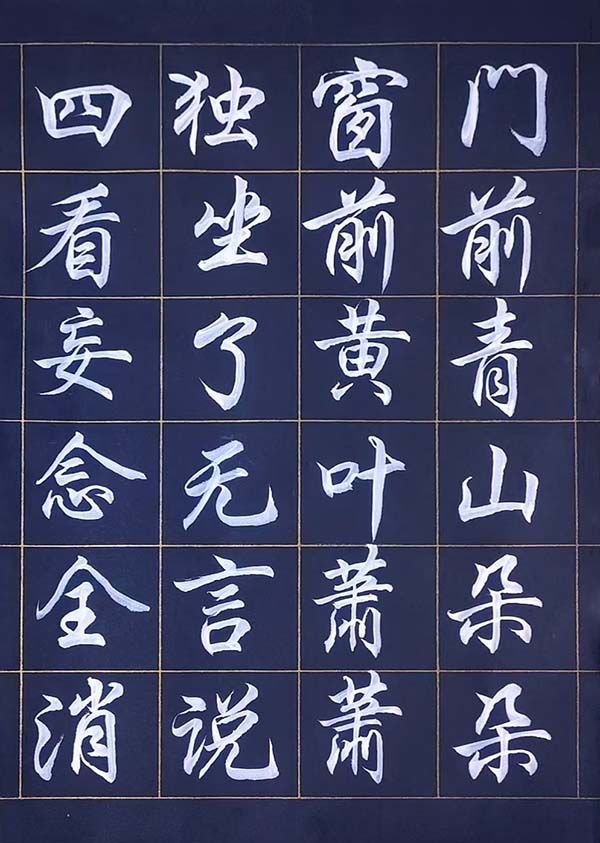 門前青山朵朵
窗前黄叶蕭蕭
独坐了无言说
四看妄念全消